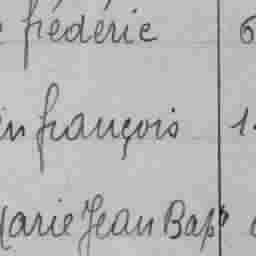 frédérie 6
in françois 1
Marie Jean Bapt